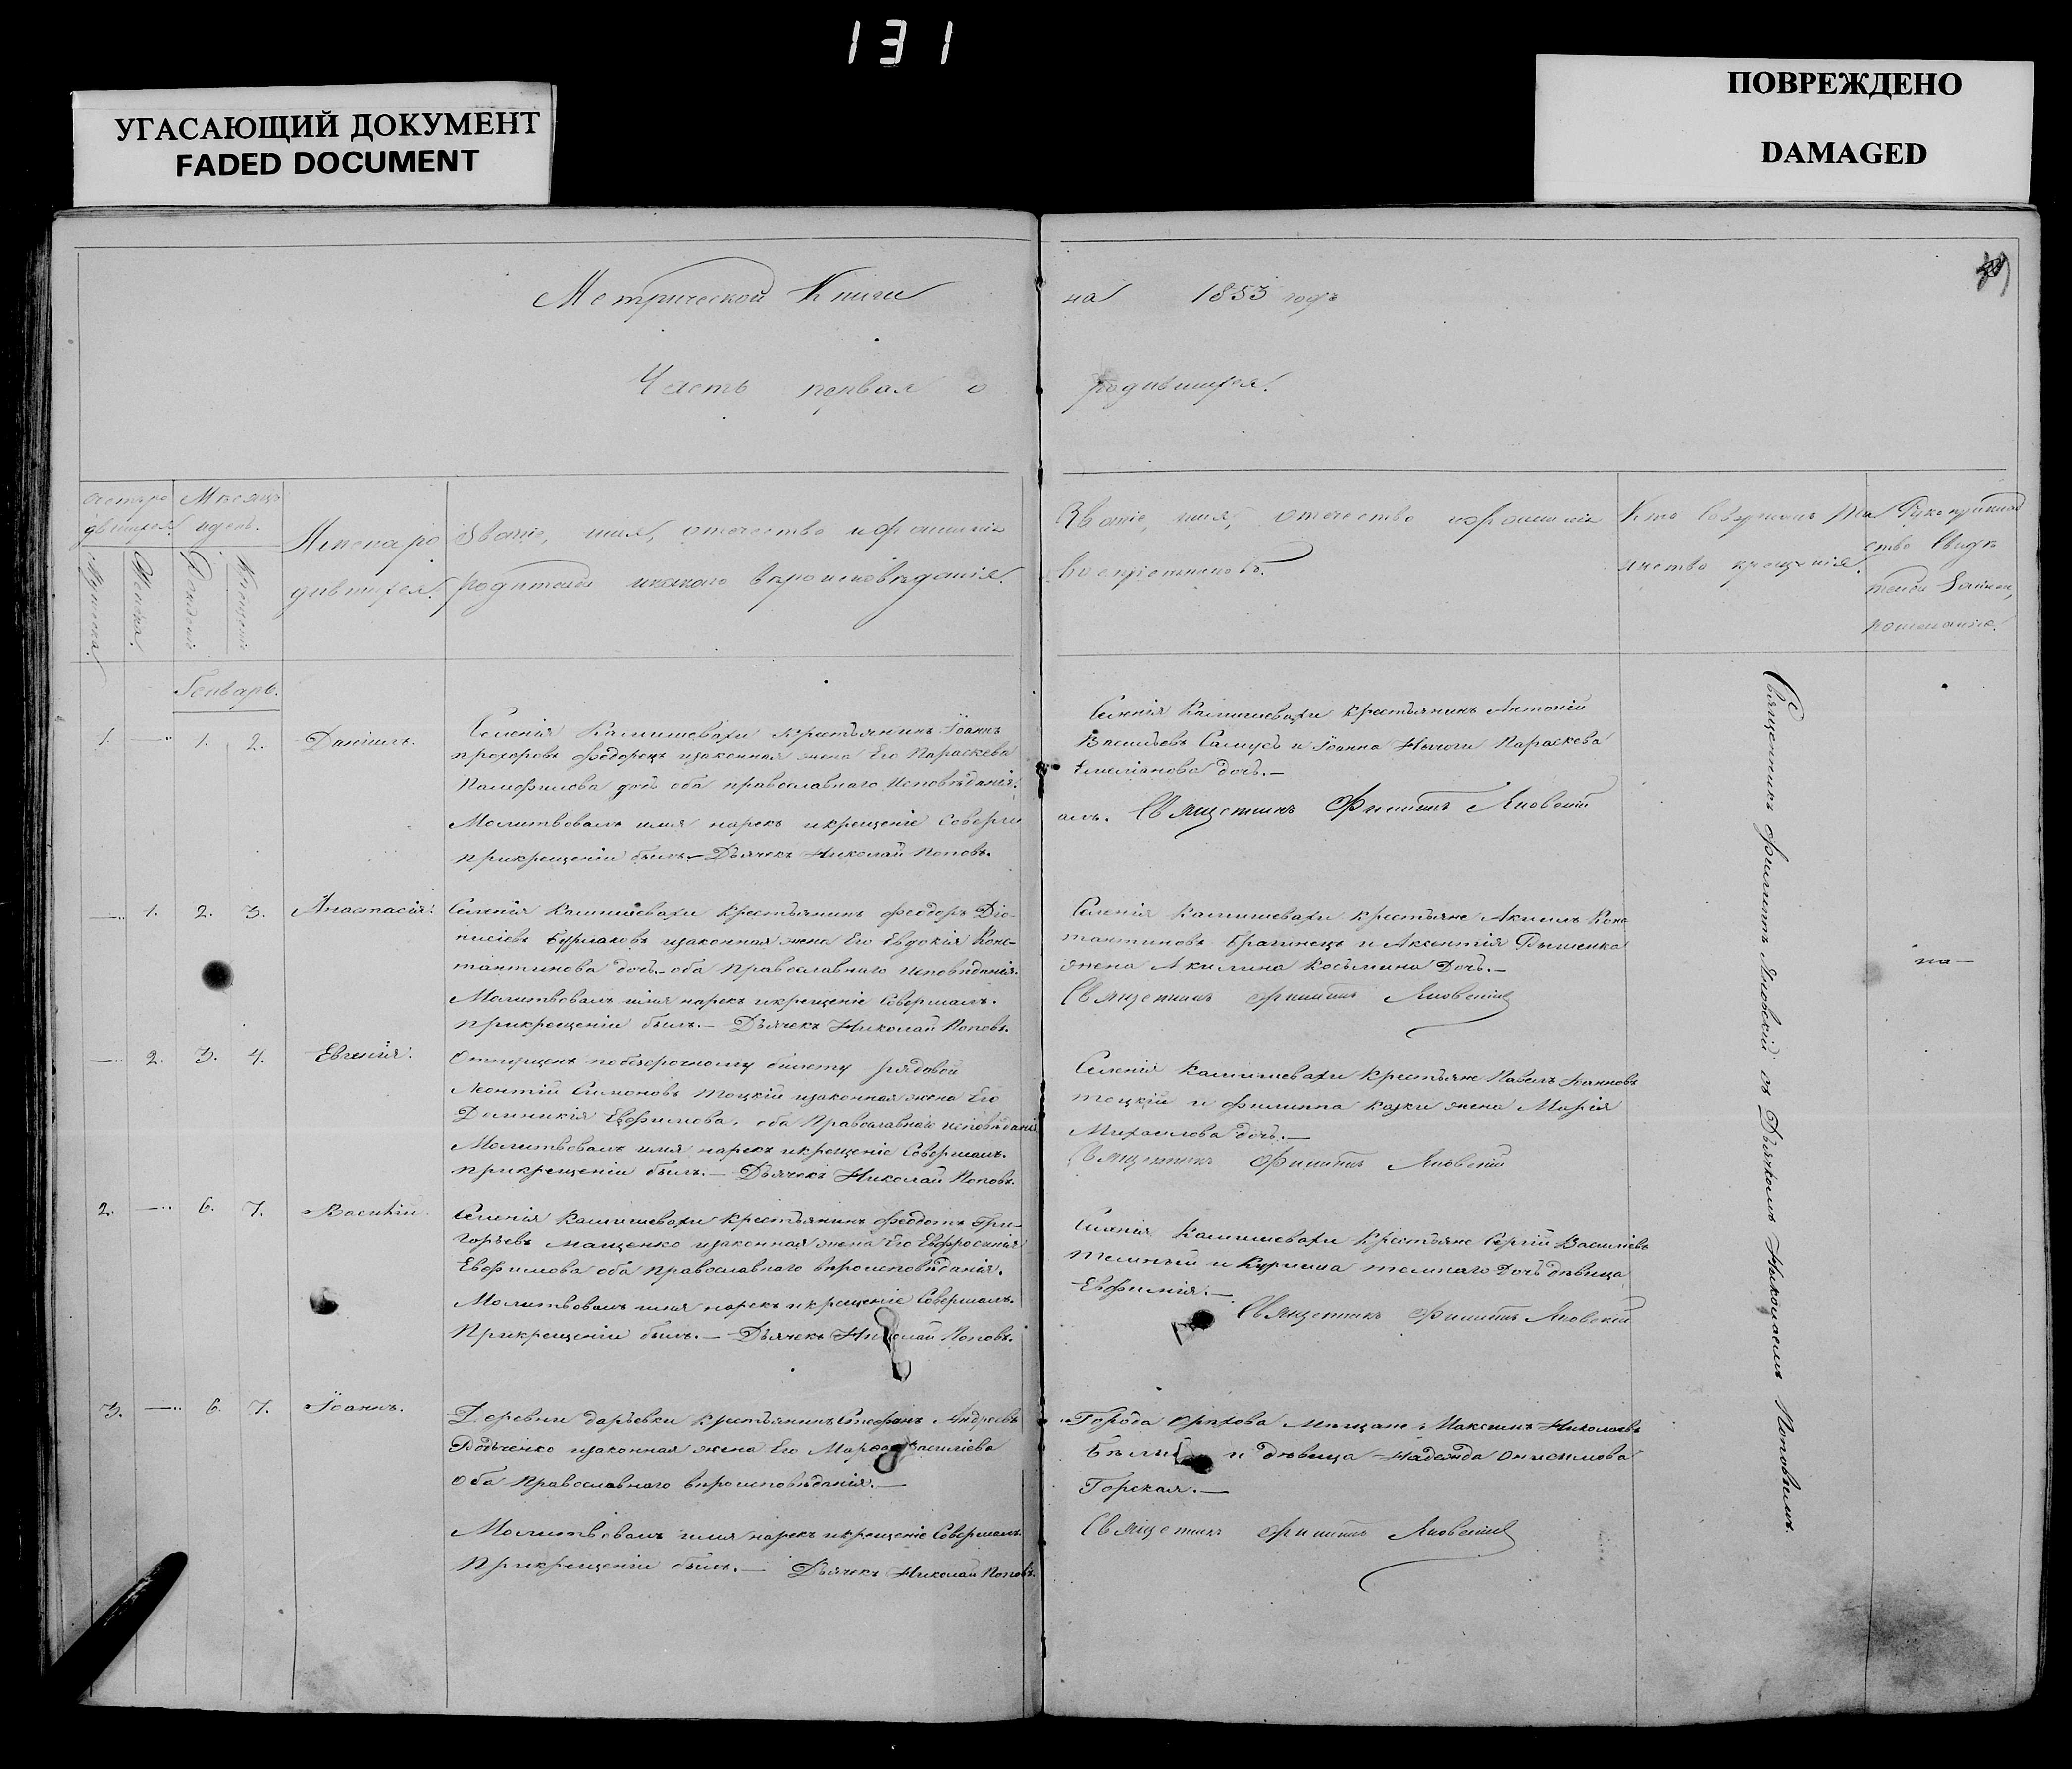 131
УГАСАЮЩИЙ ДОКУМЕНТ
FADED DOCUMENT
ПОВРЕЖДЕНО
DAMAGED
Метрической Книги на 1853 годъ
Часть первая о родившихся.
Мѣсяцъ
и день.
Имена ро
дившихся.
Званіе, имя, отечество и фамилія
родителей и какого вѣроисповѣданія.
Званіе, имя, отечество и фамилія
воспріемниковъ.
Кто совершалъ та
инство крещенія.
Рукоприклад
ство свидѣ
телей
Мужеска.
Женска.
Рожденія
Крещенія
Генварь.
1. — 1. 2.
Даніилъ.
Селенія Камишевахи крестьянинъ Іоаннъ
Прохоровъ Федорецъ изаконная жена Его Параскева
Памфилова дочь оба православнаго Исповѣданія.
Молитвовалъ имя нарекъ икрещеніе Соверши
прикрещеніи былъ.— Дьячекъ Николай Поповъ.
Селенія Камишевахи Крестьянинъ Антоній
Васильевъ Самусь и Іоанна Параскева
Емеліанова дочь.—
алъ. Священникъ Филиппъ Яновскій
— 1. 2. 3.
Анастасія.
Селенія Камишевахи Крестьянинъ Феодоръ Діо-
нисіевъ Бурлаковъ изаконная жена Его Евдокія Конс-
тантинова дочь.— оба Православнаго исповѣданія.
Молитвовалъ имя нарекъ икрещеніе Совершалъ.
прикрещеніи былъ.— Дьячекъ Николай Поповъ.
Селенія Камишевахи крестьяне Акимъ Конс
тантиновъ Брагинецъ и Аксентія
жена Акилина Косьмина Дочь.—
Священникъ Филиппъ Яновскій
— 2. 3. 4.
Евгенія.
Отпущенъ побезсрочному билету рядовой
Леонтій Симоновъ Тоцкій изаконная жена Его
Домникія Евфимова. оба Православнаго исповѣданія
Молитвовалъ имя нарекъ икрещеніе Совершалъ.
прикрещеніи былъ.— Дьячекъ Николай Поповъ.
Селенія Камишевахи Крестьяне Павелъ Іоанновъ
Тоцкій и Филиппа жена Марія
Михаилова дочь.—
Священникъ Филиппъ Яновскій
2. — 6. 7.
Василій.
Селенія Камишевахи Крестьянинъ Феодотъ Гри-
горьевъ Мащенко изаконная жена Его Евфросинія
Евфимова оба православнаго вѣроисповѣданія.
Молитвовалъ имя нарекъ икрещеніе Совершалъ.
Прикрещеніи былъ.— Дьячекъ Николай Поповъ.
Селенія Камишевахи Крестьяне Сергій Василіевъ
Темный и Кирила темнаго Дочь дѣвица
Евфимія.—
Священникъ Филиппъ Яновскій
3. — 6. 7.
Іоаннъ.
Деревни Дарьевки Крестьянинъ Стефанъ Андреевъ
изаконная жена Его Марфа Василіева
Оба Православнаго вѣроисповѣданія.—
Молитвовалъ имя нарекъ икрещеніе Совершалъ.
Прикрещеніи былъ.— Дьячекъ Николай Поповъ.
Города Орѣхова Мещане Максимъ Николаевъ
и дѣвица Надежда Онисимова
Горская.—
Священникъ Филиппъ Яновскій
Священникъ Филиппъ Яновскій съ Дьячкомъ Николаемъ Поповымъ.